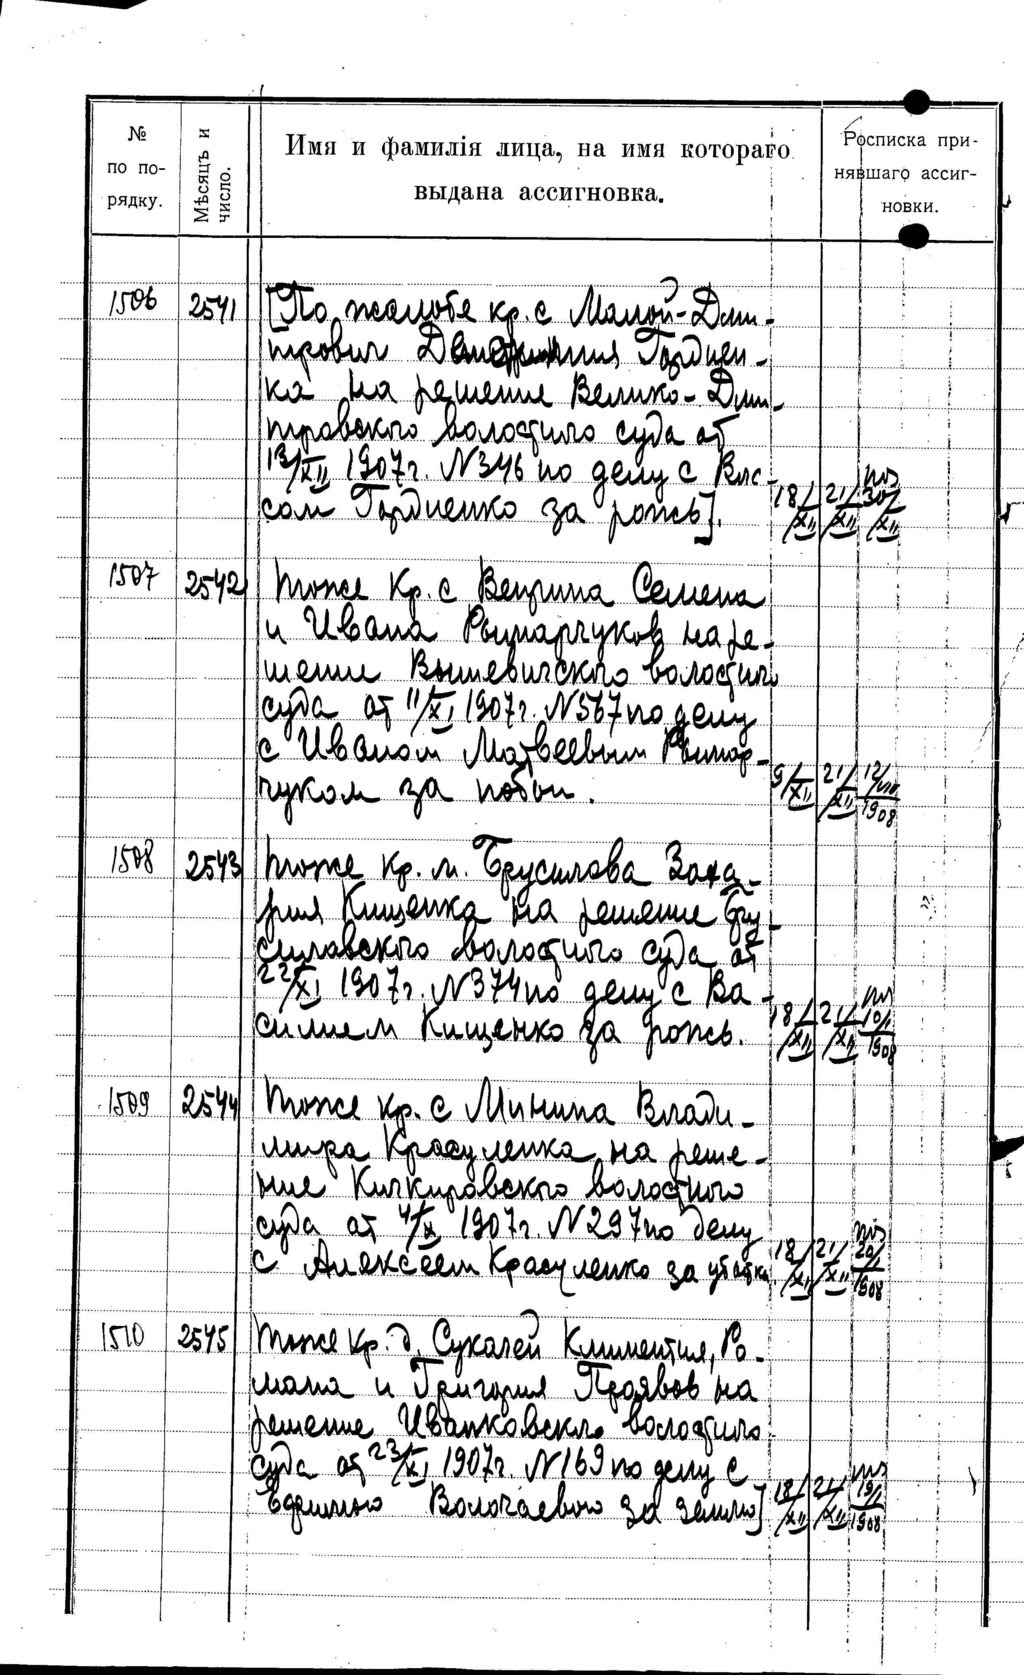 № по порядку.
Мѣсяцъ и число.
Имя и фамилія лица, на имя котораго
выдана ассигновка.
Росписка при-
нявшаго ассиг-
новки.
1506 2541 [По жалобе кр. с Малой-Дми-
трович Гордиен-
ка на решение Велико-Дми-
тровского волостного суда от
13/XII 1907 г. N346 по делу с Вла-
сом Гордиенко за рожь]. 18/XII 21/XII 30/XII
1507 2542 тоже кр. с Веприна Семена
и Ивана Рымарчуков на ре-
шение Вышевичского волостного
суда от 11/XI 1907 г. N567 по делу
с Иваном Матвеевым Рымар-
чуком за побои. 9/XII 21/XII 12/VIII 1908
1508 2543 тоже кр. м. Брусилова Заха-
рия Кищенка на решение Бру-
силовского волостного суда от
22/XI 1907 г. N374 по делу с Ва-
силием Кищенко за рожь. 18/XII 21/XII 10/I 1908
1509 2544 тоже кр. с Минина Влади-
мира Красуленка на реше-
ние Кичкировского волостного
суда от 4/X 1907 г. N297 по делу
с Алексеем Красуленко за убытки. 18/XII 21/XII 20/I 1908
1510 2545 тоже кр. д. Сукачей Климентия, Ро-
мана и Григория Проявов на
решение Иванковского волостного
суда от 23/XI 1907 г. N169 по делу с
Волочаевою за землю] 18/XII 21/XII 19/I 1908